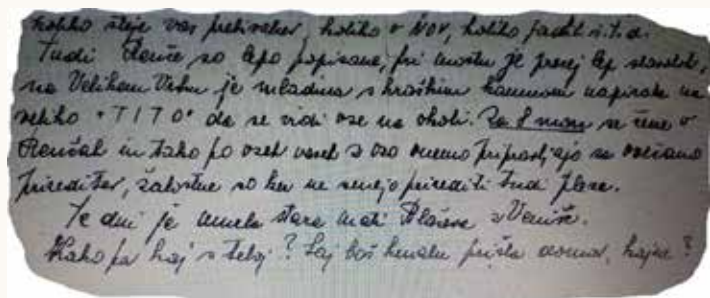 koliko šteje vas prebivalcev, koliko v NOV, koliko padlih i.t.d.
Tudi Renče so lepo popisane, pri mostu je precej lep slavolok,
na Velikem Vrhu je mladina s kraškim kamnom napisala na
veliko "TITO" da se vidi vse na okoli. Za 8 marc se žene v
Renčah in tako po vseh vaseh z vso vnemo pripravljajo za
prireditev, žalostne so ker ne smejo prirediti tudi plese.
Te dni je umrla stara mati
Kako pa kaj s teboj? Saj boš kmalu prišla domov, kajne?